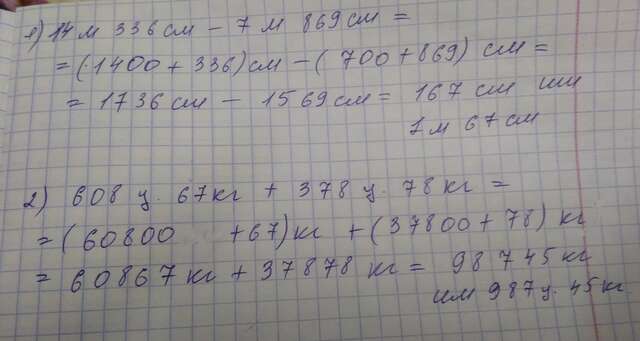 1) 14 м 336 см - 7 м 869 см =
= (1400 + 336) см - (700 + 869) см =
= 1736 см - 1569 см = 167 см или
1 м 67 см
2) 608 ц. 67 кг + 378 ц. 78 кг =
= (60800 + 67) кг + (37800 + 78) кг
= 60867 кг + 37878 кг = 98745 кг
или 987 ц. 45 кг